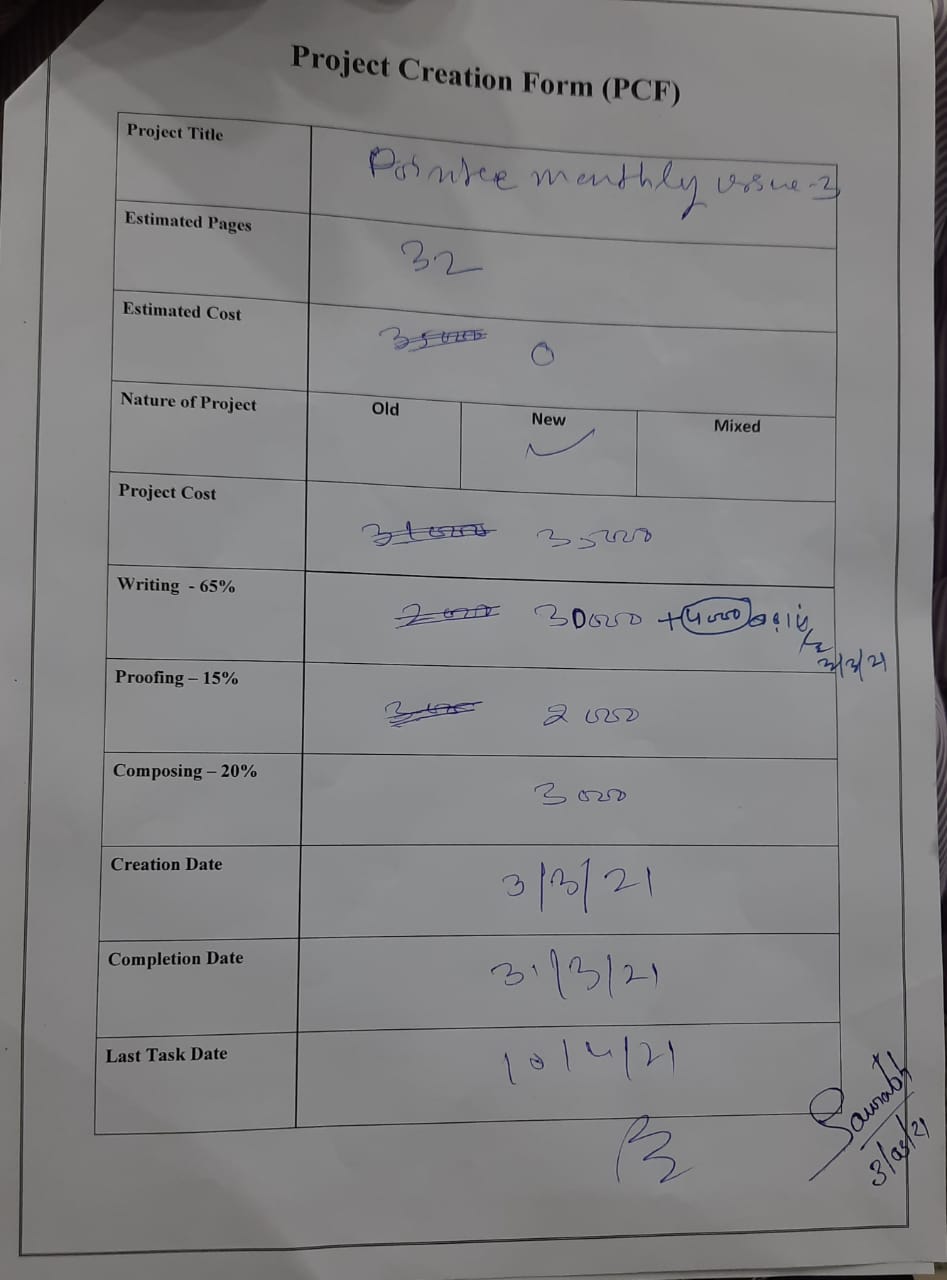 Project Creation Form (PCF)
Project Title
Pointee monthly issue-3
Estimated Pages
32
Estimated Cost
35000 0
Nature of Project
Old New Mixed
Project Cost
31000 35000
Writing - 65%
30000 + 4000
3/3/21
Proofing – 15%
2000
Composing – 20%
3000
Creation Date
3/3/21
Completion Date
31/3/21
Last Task Date
10/4/21
Saurabh
3/03/21